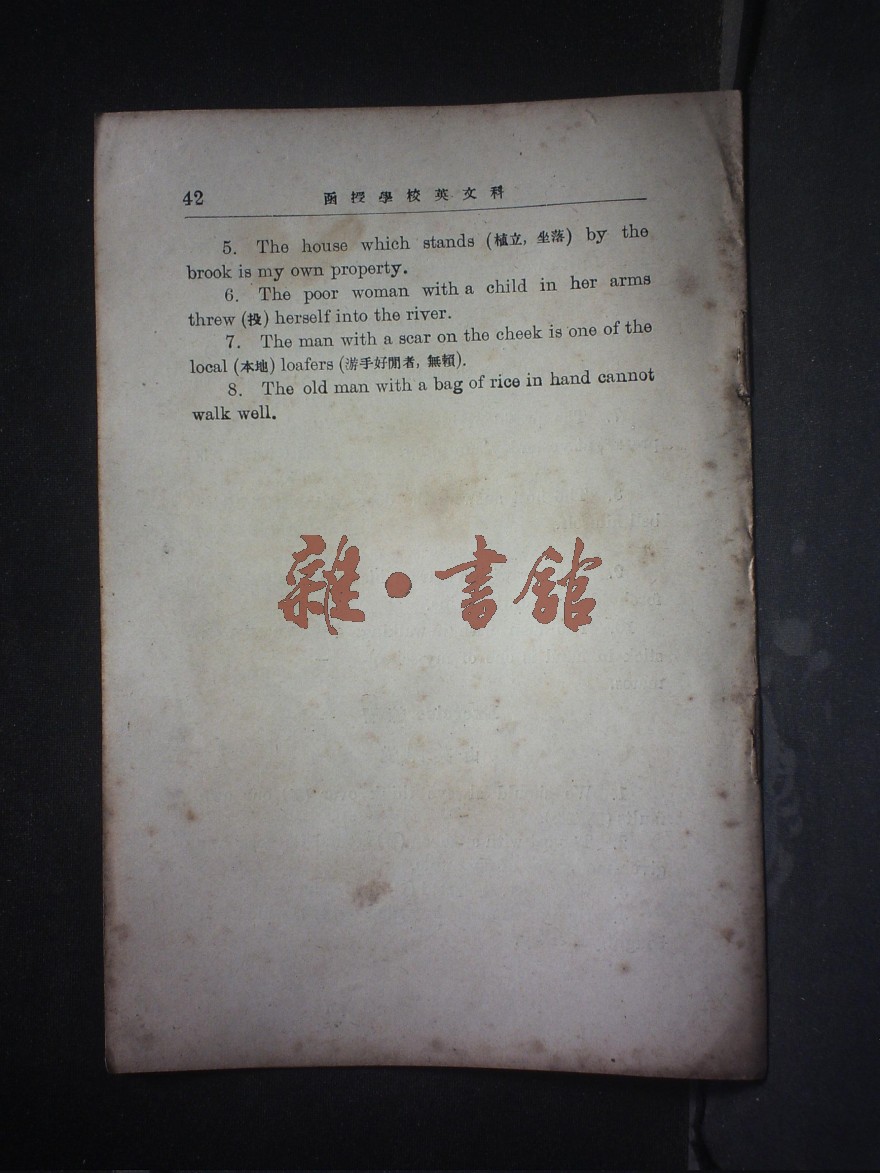 42 函授學校英文科
5. The house which stands (植立, 坐落) by the
brook is my own property.
6. The poor woman with a child in her arms
threw (投) herself into the river.
7. The man with a scar on the cheek is one of the
local (本地) loafers (游手好閒者, 無賴).
8. The old man with a bag of rice in hand cannot
walk well.
雜·書館